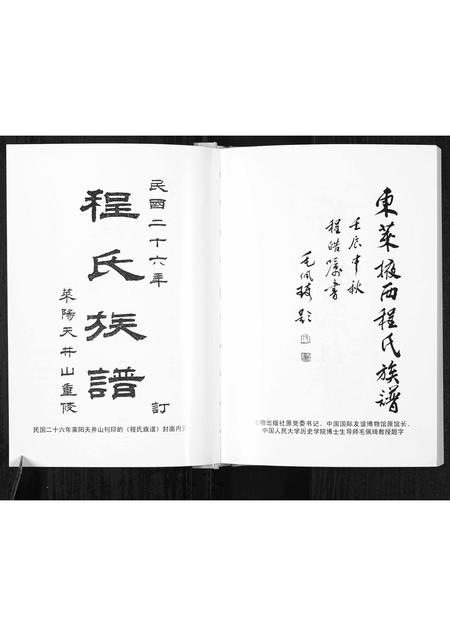 民國二十六年 訂
程氏族譜
萊陽天井山重修
民国二十六年莱阳天井山刊印的《程氏族谱》封面内页
東萊掖西程氏族譜
壬辰中秋
程皓囑書
毛佩琦題
出版社原党委书记、中国国际友谊博物馆原馆长、
中国人民大学历史学院博士生导师毛佩琦教授题字